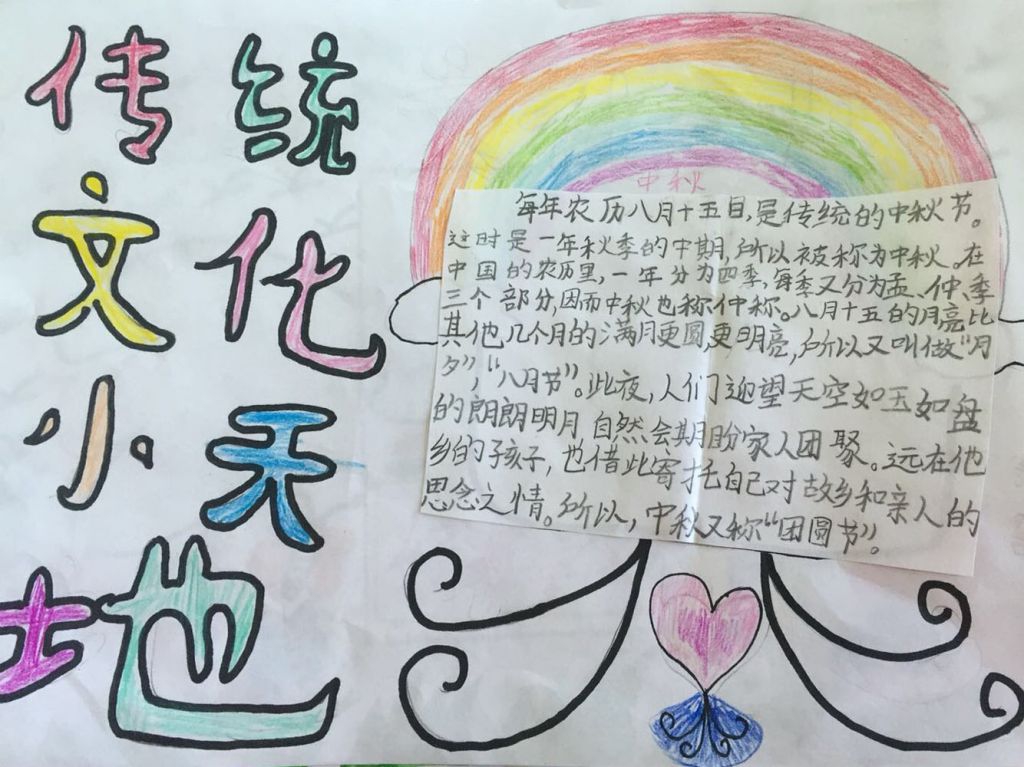 传统
文化
小天
地
中秋
每年农历八月十五日,是传统的中秋节。
这时是一年秋季的中期,所以被称为中秋。在
中国的农历里,一年分为四季,每季又分为孟、仲、季
三个部分,因而中秋也称仲称。八月十五的月亮比
其他几个月的满月更圆,更明亮,所以又叫做“月
夕”,“八月节”。此夜,人们迎望天空如玉如盘
的朗朗明月自然会期盼家人团聚。远在他
乡的孩子,也借此寄托自己对故乡和亲人的
思念之情。所以,中秋又称“团圆节”。